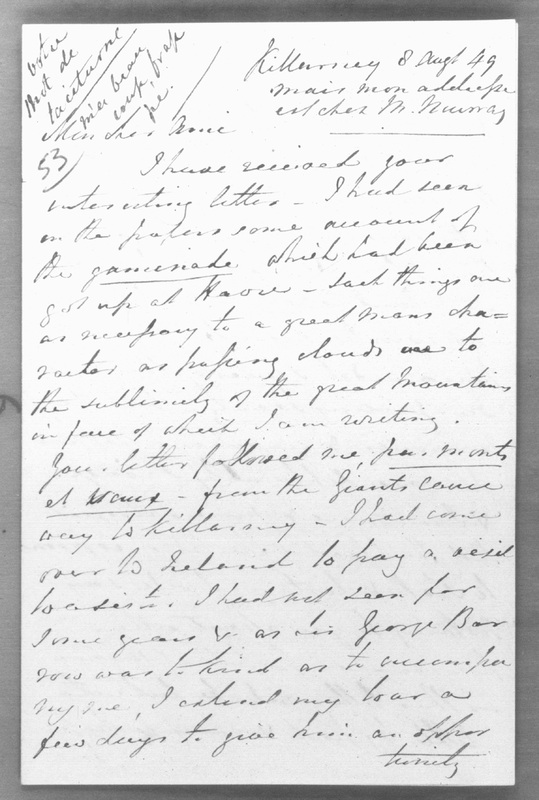 votre
mot de
taciturne
m'a beau
coup frap
pé.
Killarney 8 Augt 49
mais mon addresse
est chez M. Murray
Mon cher Amie
53)
I have received your
interesting letter – I had seen
in the papers some account of
the gaminade which had been
got up at Havre – such things are
as necessary to a great mans cha=
racter as passing clouds are to
the sublimity of the great Mountains
in face of which I am writing.
Your letter followed me, par monts
et vaux – from the Giants Cause
way to Killarney – I had come
over to Ireland to pay a visit
to a sister I had not seen for
some years & as Sir George Bar
row was so kind as to accompa
ny me, I extend my tour a
few days to give him an oppor
tunity